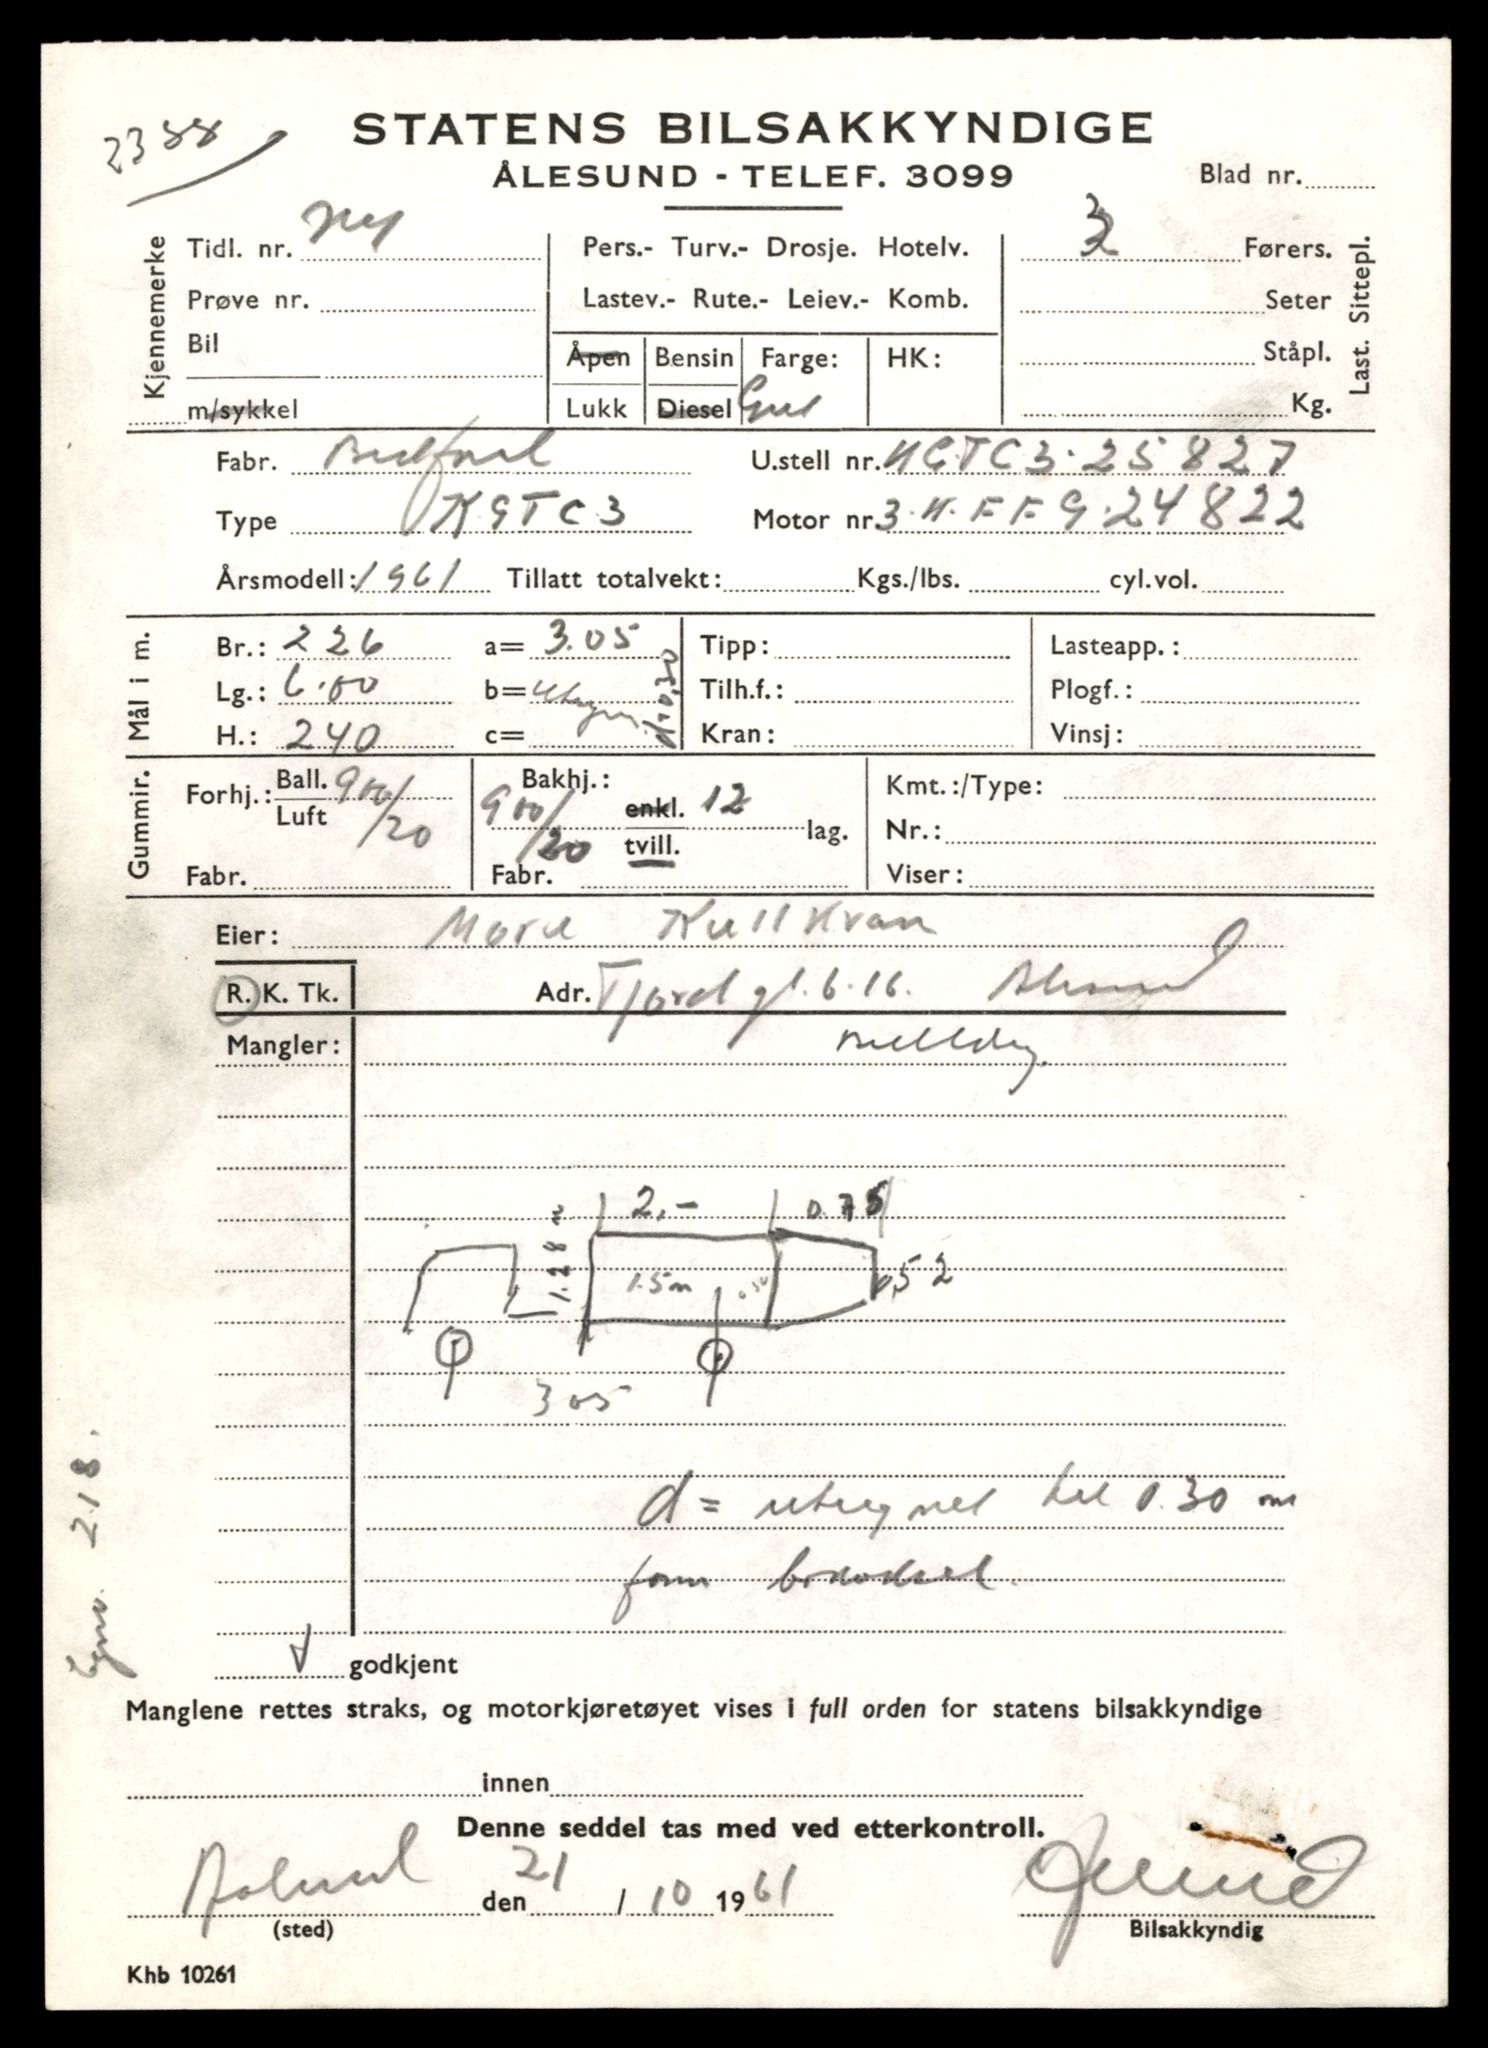 2388
STATENS BILSAKKYNDIGE
ÅLESUND - TELEF. 3099
Blad nr.
Kjennemerke
Tidl. nr. Ny
Prøve nr.
Bil
m/sykkel
Pers.- Turv.- Drosje. Hotelv.
Lastev.- Rute.- Leiev.- Komb.
Åpen Bensin Farge: HK:
Lukk Diesel Gul
3 Førers.
Seter
Ståpl.
Kg.
Last. Sittepl.
Fabr. Bedford U.stell nr. KGTC3.25827
Type KGTC3 Motor nr. 3.K.F.F.G.24822
Årsmodell: 1961 Tillatt totalvekt: Kgs./lbs. cyl.vol.
Mål i m.
Br.: 226 a= 3.05 Tipp: Lasteapp.:
Lg.: 6.00 b= Tilh.f.: Plogf.:
H.: 240 c= Kran: Vinsj:
Gummir.
Forhj.: Ball. 900/20 Bakhj.: Kmt.:/Type:
Luft 900/20 enkl. 12 lag. Nr.:
tvill.
Fabr. Fabr. Viser:
Eier: Kullkran
R. K. Tk. Adr. Fjordgt. 6.16. Ålesund
Mangler:
2,- 0.75
1.28 1.5m 0,52
305
d = utregnet til 0.30 m
foran bakaksel.
218.
godkjent
Manglene rettes straks, og motorkjøretøyet vises i full orden for statens bilsakkyndige
innen
Denne seddel tas med ved etterkontroll.
Aalesund den 21 / 10 1961
(sted) Bilsakkyndig
Khb 10261